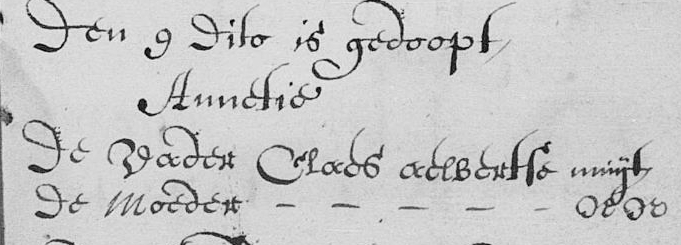 Den 9 dito is gedoopt
Annetie
De Vader Claes aelbertse
de Moeder - - - - -